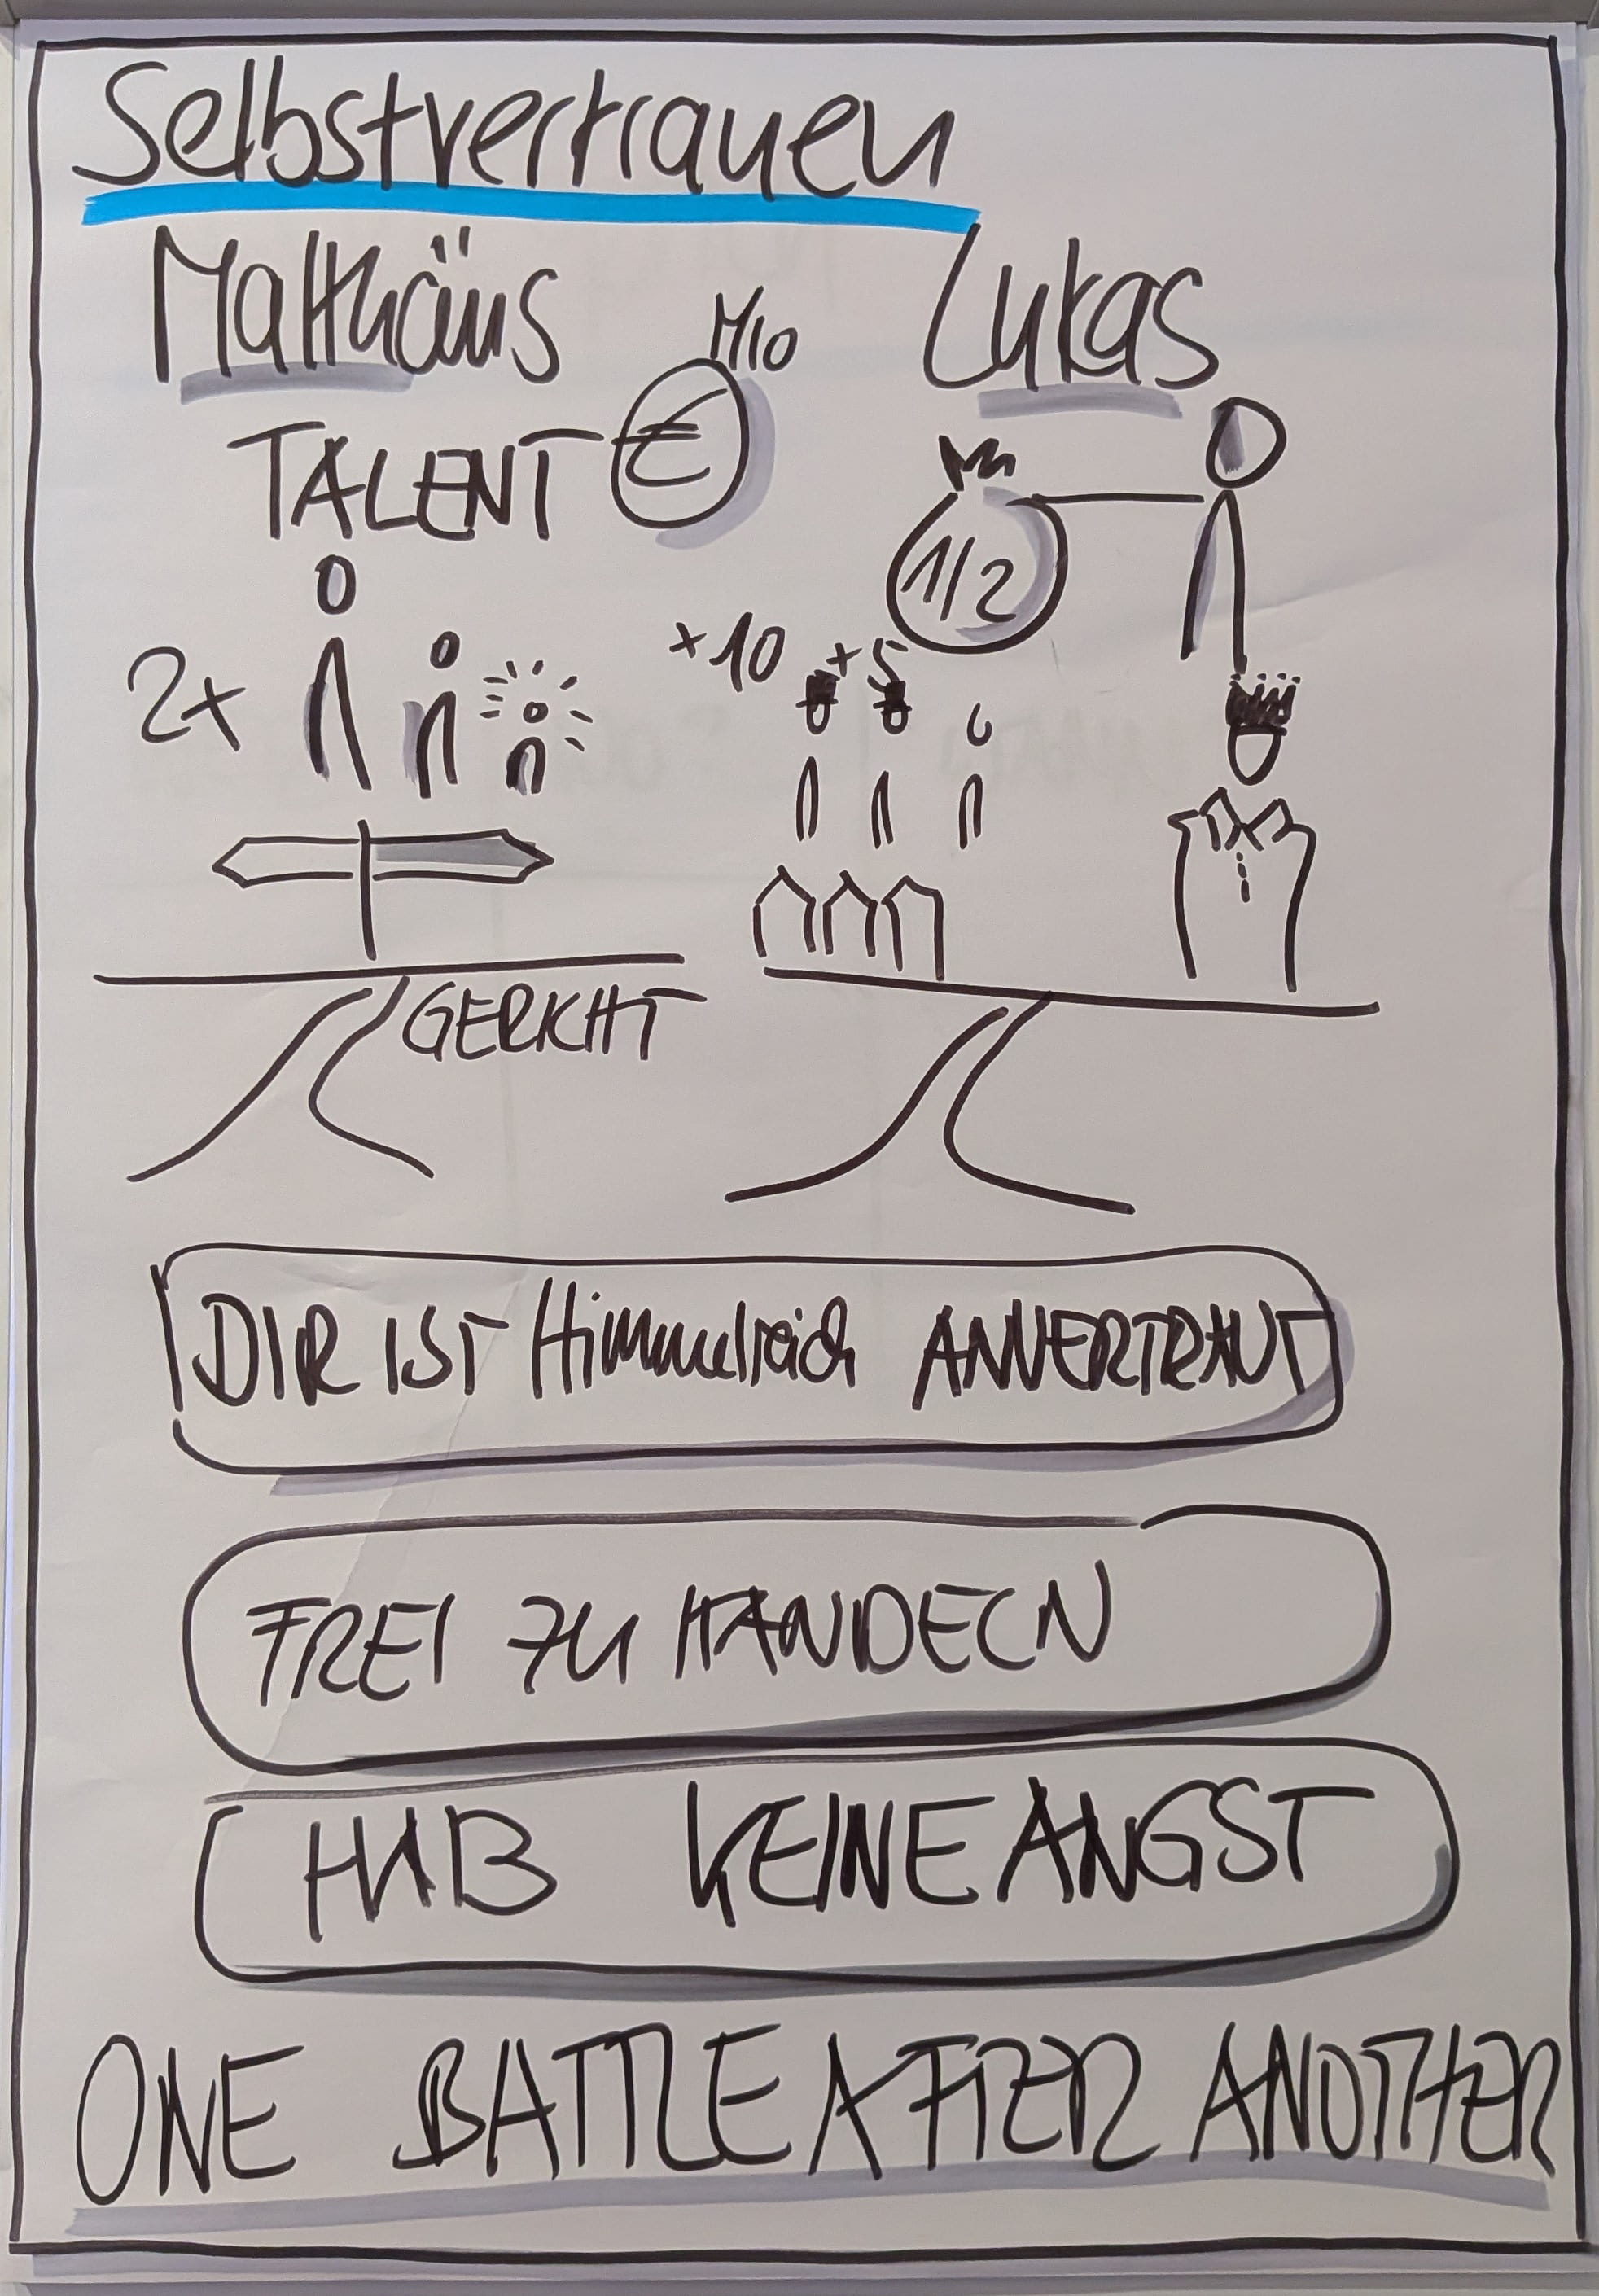 Selbstvertrauen
Matthäus
Mio
€
TALENT
2x
GERICHT
Lukas
1/2
+10 +5
DIR IST Himmelreich ANVERTRAUT
FREI ZU HANDELN
HAB KEINE ANGST
ONE BATTLE AFTER ANOTHER